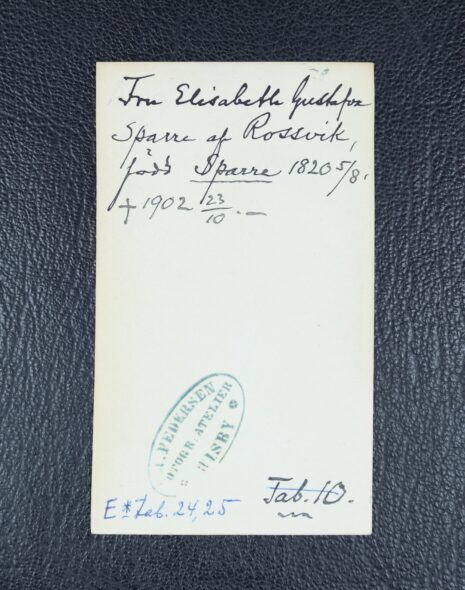 Fru Elisabeth Gustafva
Sparre af Rossvik,
född Sparre 1820 5/8.
† 1902 23/10.—
A. PEDERSEN
FOTOGR. ATELIER
VISBY
Tab. 10.
E * Tab. 24, 25